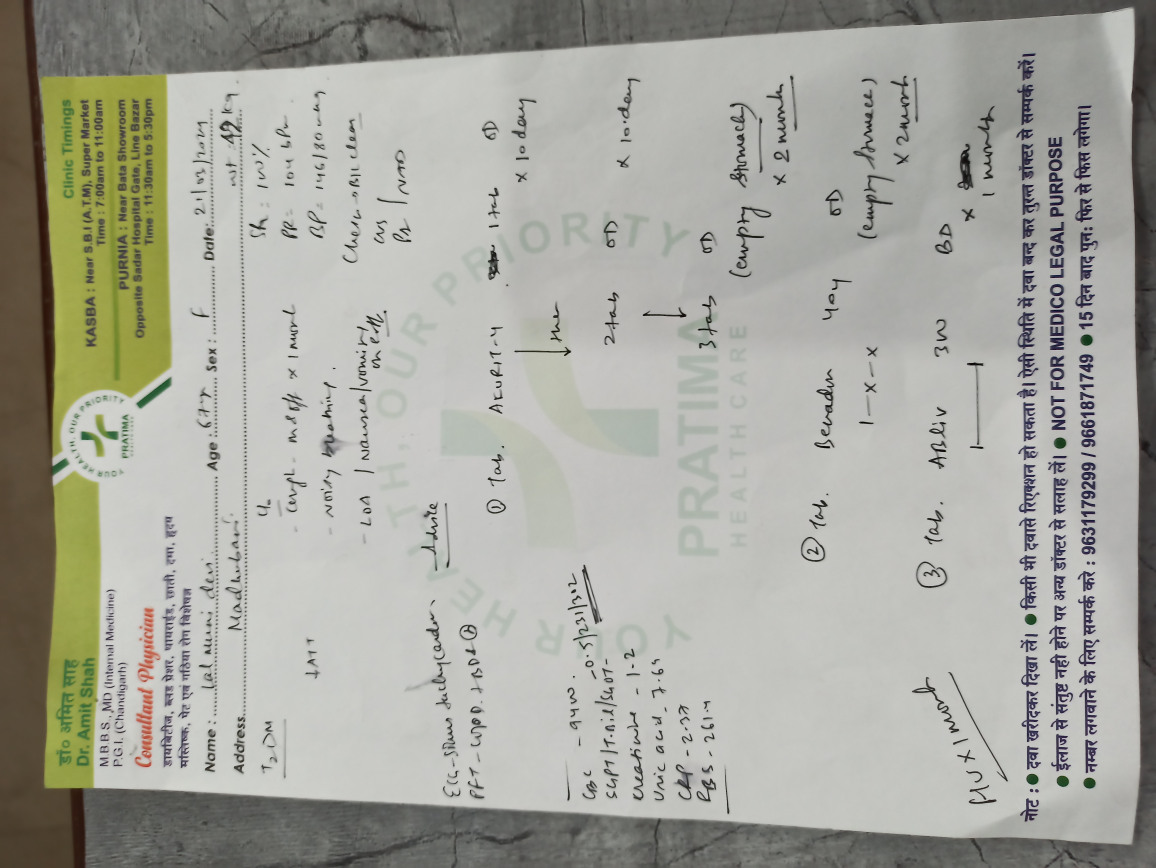 डॉ० अमित साह
Dr. Amit Shah
M.B.B.S., MD (Internal Medicine)
P.G.I. (Chandigarh)
Consultant Physician
डायबिटीज, ब्लड प्रेशर, थायराईड, छाती, दमा, हृदय
मस्तिष्क, पेट एवं गठिया रोग विशेषज्ञ
YOUR HEALTH, OUR PRIORITY
PRATIMA
Clinic Timings
KASBA : Near S.B.I (A.T.M), Super Market
Time : 7:00am to 11:00am
PURNIA : Near Bata Showroom
Opposite Sadar Hospital Gate, Line Bazar
Time : 11:30am to 5:30pm
Name : Lal muni devi Age : 67 yr Sex : F Date: 21/03/2024
Address Madhubani wt 49 kg
T2DM
↓ATT
c/o
- Cough - m & ff x 1 month
- Noisy breathing.
- LOA / Nausea/vomiting on & off
PR = 104 bpm.
BP = 146/80 mmHg
Chest → B/L clear
CVS
PA / NAD
ECG - Sinus tachycardia.
PFT - COPD.
Advice
CBC - 9400.
SGPT/T.Bil/SGOT - 0.5/231/302
Creatinine - 1.2
Uric acid - 7.69
CRP - 2.37
RBS - 261.4
① Tab. AKURIT-4 1 tab OD x 10 day
↓ then
2 tab OD x 10 day
↓
3 tab OD
(empty stomach) x 2 month
② Tab. Benadon 40 mg OD
1—x—x (empty stomach) x 2 month
③ Tab. ABliv 300 BD
1——1 x 1 month
F/U x 1 month
YOUR HEALTH, OUR PRIORITY
PRATIMA
HEALTHCARE
नोट : ● दवा खरीदकर दिखा लें। ● किसी भी दवासे रिएक्शन हो सकता है। ऐसी स्थिति में दवा बन्द कर तुरन्त डॉक्टर से सम्पर्क करें।
● ईलाज से संतुष्ट नही होने पर अन्य डॉक्टर से सलाह लें। ● NOT FOR MEDICO LEGAL PURPOSE
● नम्बर लगवाने के लिए सम्पर्क करे : 9631179299 / 9661871749 ● 15 दिन बाद पुन: फिर से फिस लगेगा।